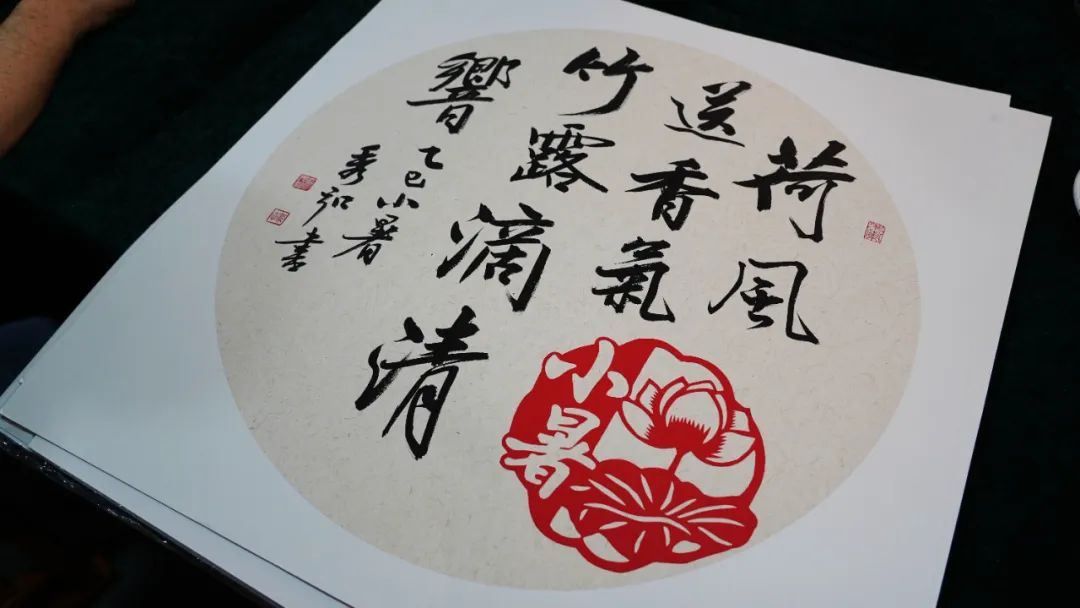 荷風
送香氣
竹露滴清
響
乙巳小暑
書
小暑